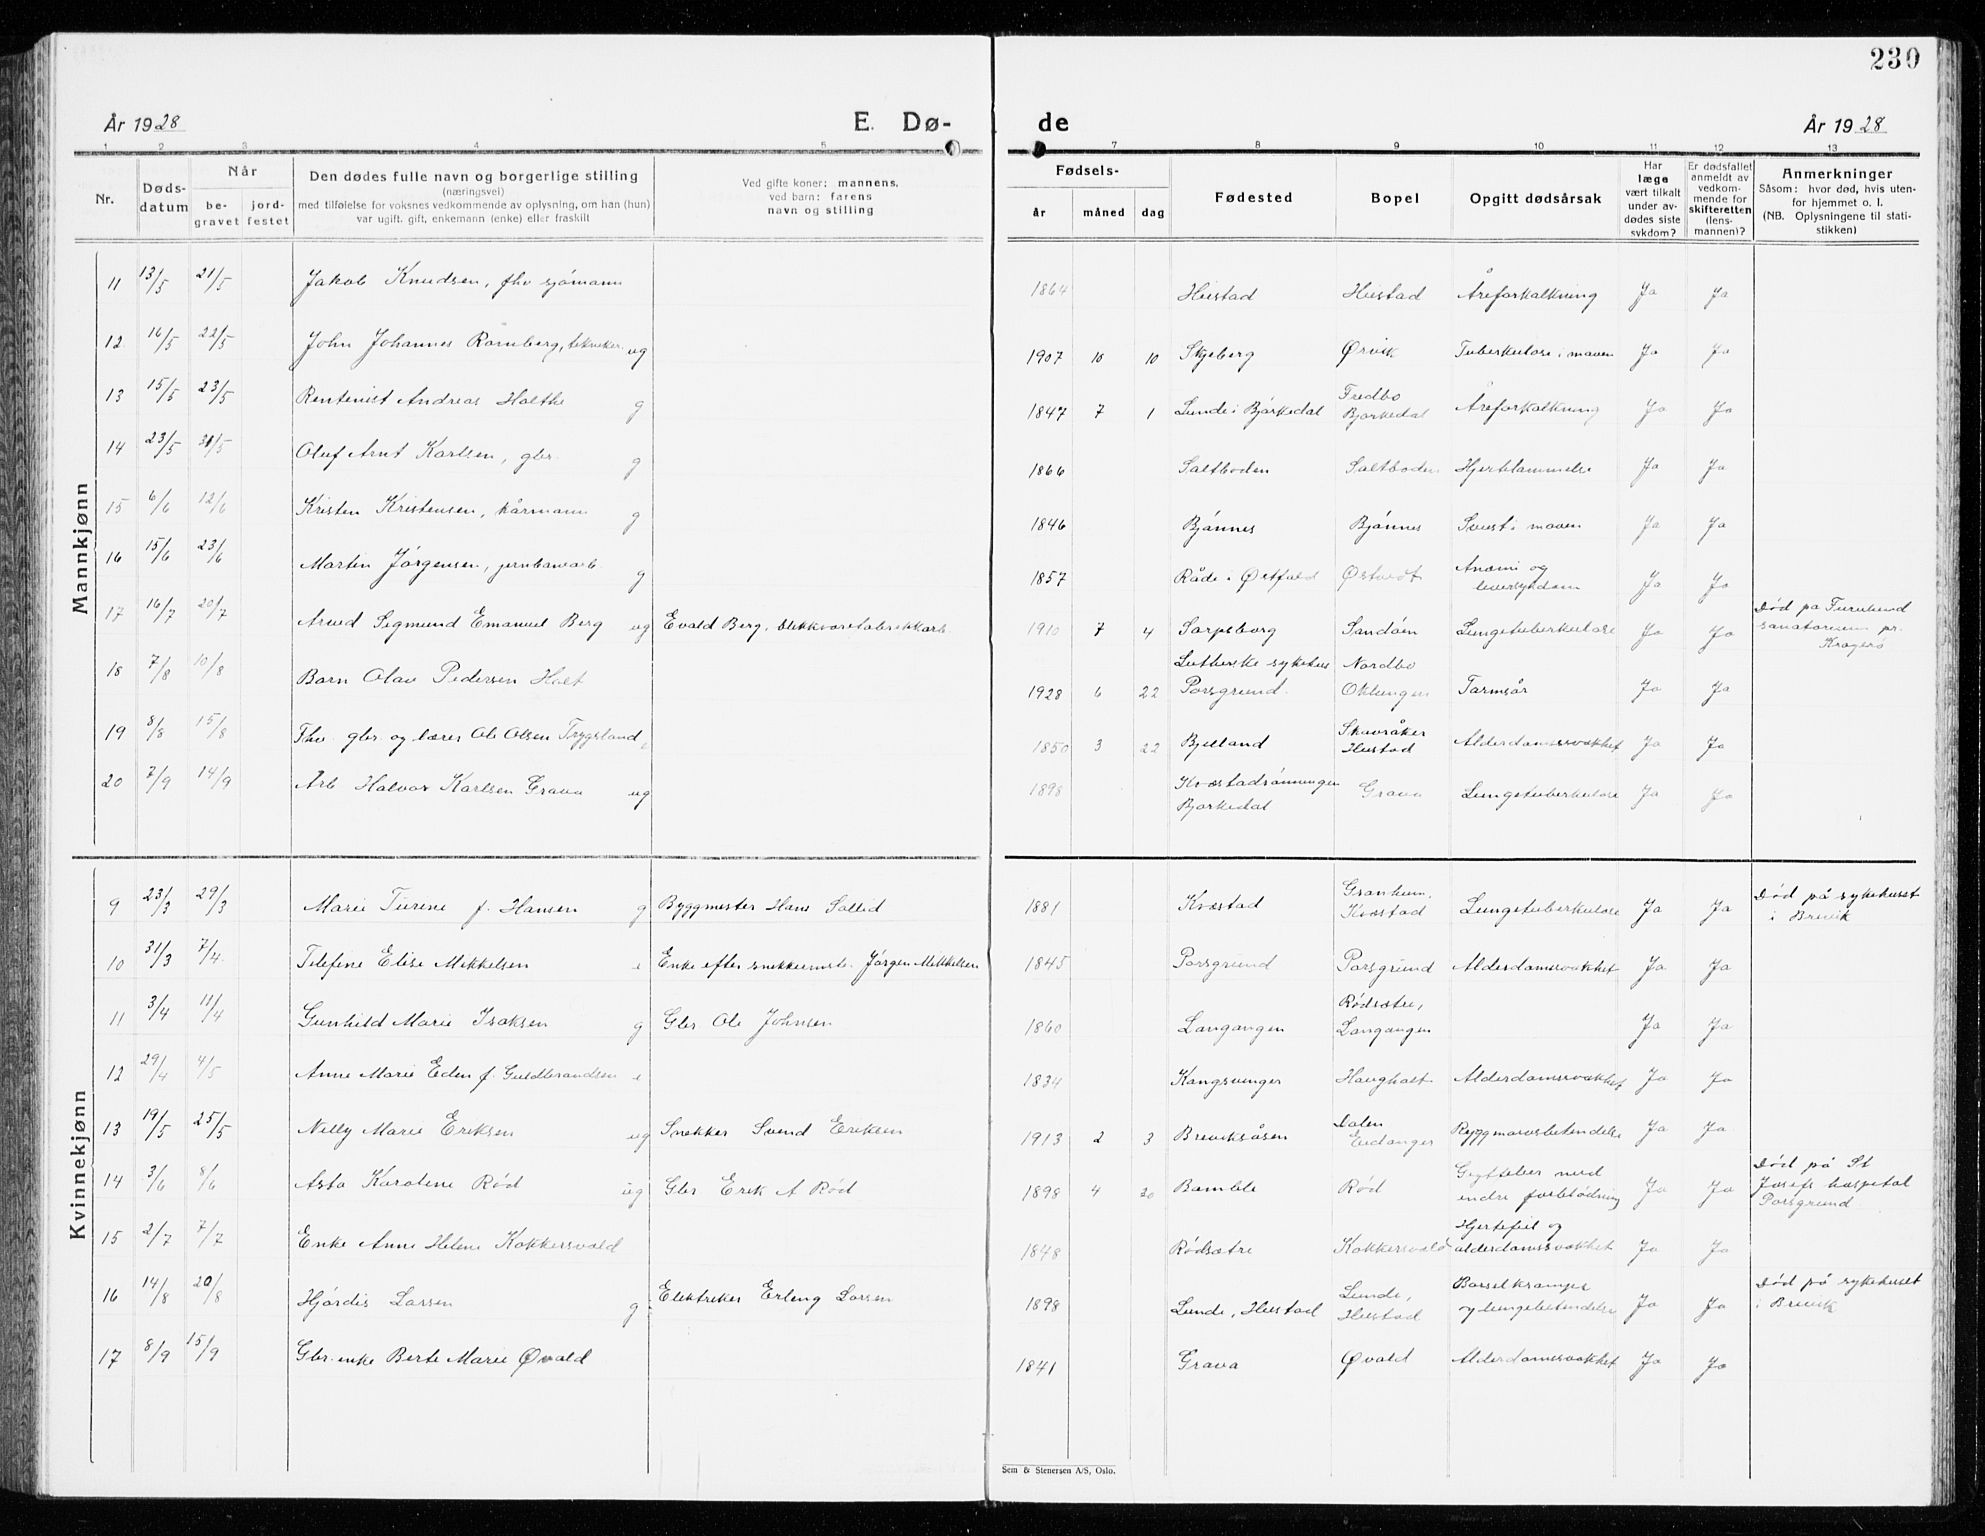 230
År 1928 E. Dø- de År 1928
1 2 3 4 5 7 8 9 10 11 12 13
Nr. Døds-datum Når be-gravet jord-festet Den dødes fulle navn og borgerlige stilling (næringsvei) med tilføielse for voksnes vedkommende av oplysning, om han (hun) var ugift, gift, enkemann (enke) eller fraskilt Ved gifte koner: mannens, ved barn: farens navn og stilling Fødsels- år måned dag Fødested Bopel Opgitt dødsårsak Har læge vært tilkalt under av-dødes siste sykdom? Er dødsfallet anmeldt av vedkom-mende for skifteretten (lens-mannen)? Anmerkninger Såsom: hvor død, hvis uten-for hjemmet o. l. (NB. Oplysningene til stati-stikken)
Mannkjønn
11 13/5 21/5 Jakob Knudsen, fhv sjømann 1864 Heistad Heistad Åreforkalkning Ja Ja
12 16/5 22/5 John Johannes Ramberg, ug 1907 10 10 Skjeberg Ørvik Tuberkulose i maven Ja Ja
13 15/5 23/5 Rentenist Andreas Holthe g 1847 7 1 Lunde i Bjørkedal Fredbo Bjørkedal Åreforkalkning Ja Ja
14 23/5 31/5 Oluf Arnt Karlsen, gbr. g 1866 Saltboden Saltboden Hjertelammelse Ja Ja
15 6/6 12/6 Kristen Kristensen, kårmann g 1846 Bjønnes Bjønnes Svust i maven Ja Ja
16 15/6 23/6 Martin Jørgensen, jernbanearb. g 1857 Råde i Østfold Østvedt Anemi og leversykdom Ja Ja
17 16/7 20/7 Arvid Sigmund Emanuel Berg ug Evald Berg, blikkvarefabrikkarb. 1910 7 4 Sarpsborg Sandøen Lungetuberkulose Ja Ja Død på Furulund sanatorium pr. Kragerø
18 7/8 10/8 Barn Olav Pedersen Holt 1928 6 22 Lutherske sykehus Porsgrund. Nordbo Oklungen Tarmsår Ja Ja
19 8/8 15/8 Fhv. gbr. og lærer Ole Olsen Trygsland e 1850 3 22 Bjelland Skavråker Heistad Alderdomssvakhet Ja Ja
20 7/9 14/9 Arb Halvor Karlsen Grava ug 1898 Kvæstadrønningen Bjørkedal Grava Lungetuberkulose Ja Ja
Kvinnekjønn
9 23/3 29/3 Marie Turine f. Hansen g Byggmester Hans Sollid 1881 Kvæstad Granheim, Kvæstad Lungetuberkulose Ja Ja Død på sykehuset i Brevik
10 31/3 7/4 Tilefine Elise Mikkelsen e Enke efter snekkermstr. Jørgen Mikkelsen 1845 Porsgrund Porsgrund Alderdomssvakhet Ja Ja
11 3/4 11/4 Gunhild Marie Isaksen g Gbr Ole Johnsen 1860 Langangen Rødsætre, Langangen Ja Ja
12 29/4 4/5 Anne Marie Eden f. Guldbrandsen e 1834 Kongsvinger Haugholt Alderdomssvakhet Ja Ja
13 19/5 25/5 Nelly Marie Eriksen ug Snekker Svend Eriksen 1913 2 3 Breviksåsen Dalen Eidanger Ryggmarvsbetendelse Ja Ja
14 3/6 8/6 Asta Karoline Rød ug Gbr Erik A Rød 1898 4 20 Bamble Rød med indre forblødning Ja Ja Død på St Josefs hospital Porsgrund
15 2/7 7/7 Enke Anne Helene Kokkersvold 1848 Rødsætre Kokkersvold Hjertefeil og alderdomssvakhet Ja Ja
16 14/8 20/8 Hjørdis Larsen g Elektriker Erling Larsen 1898 Lunde, Heistad Lunde, Heistad Barselkrampe og lungebetendelse Ja Ja Død på sykehuset i Brevik
17 8/9 15/9 Gbr. enke Berte Marie Øvald 1841 Grava Øvald Alderdomssvakhet Ja Ja
Sem & Stenersen A/S, Oslo.